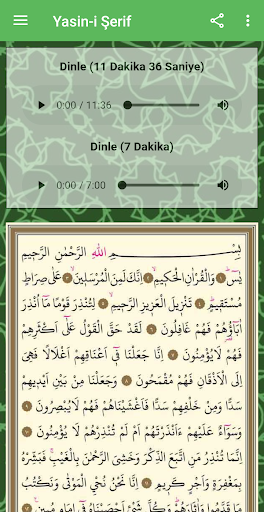 Yasin-i Şerif
Dinle (11 Dakika 36 Saniye)
0:00 / 11:36
Dinle (7 Dakika)
0:00 / 7:00
بِسْمِ اللّٰهِ الرَّحْمٰنِ الرَّحِيمِ
يٰسٓ ١ وَالْقُرْاٰنِ الْحَكِيمِ ٢ اِنَّكَ لَمِنَ الْمُرْسَلِينَ ٣ عَلٰى صِرَاطٍ
مُسْتَقِيمٍ ٤ تَنْزِيلَ الْعَزِيزِ الرَّحِيمِ ٥ لِتُنْذِرَ قَوْمًا مَٓا اُنْذِرَ
اٰبَٓاؤُهُمْ فَهُمْ غَافِلُونَ ٦ لَقَدْ حَقَّ الْقَوْلُ عَلٰٓى اَكْثَرِهِمْ
فَهُمْ لَا يُؤْمِنُونَ ٧ اِنَّا جَعَلْنَا فِٓي اَعْنَاقِهِمْ اَغْلَالًا فَهِيَ
اِلَى الْاَذْقَانِ فَهُمْ مُقْمَحُونَ ٨ وَجَعَلْنَا مِنْ بَيْنِ اَيْدِيهِمْ
سَدًّا وَمِنْ خَلْفِهِمْ سَدًّا فَاَغْشَيْنَاهُمْ فَهُمْ لَا يُبْصِرُونَ ٩
وَسَوَٓاءٌ عَلَيْهِمْ ءَاَنْذَرْتَهُمْ اَمْ لَمْ تُنْذِرْهُمْ لَا يُؤْمِنُونَ ١٠
اِنَّمَا تُنْذِرُ مَنِ اتَّبَعَ الذِّكْرَ وَخَشِيَ الرَّحْمٰنَ بِالْغَيْبِ فَبَشِّرْهُ
بِمَغْفِرَةٍ وَاَجْرٍ كَرِيمٍ ١١ اِنَّا نَحْنُ نُحْيِ الْمَوْتٰى وَنَكْتُبُ
مَا قَدَّمُوا وَاٰثَارَهُمْ وَكُلَّ شَيْءٍ اَحْصَيْنَاهُ فِٓي اِمَامٍ مُبِينٍ